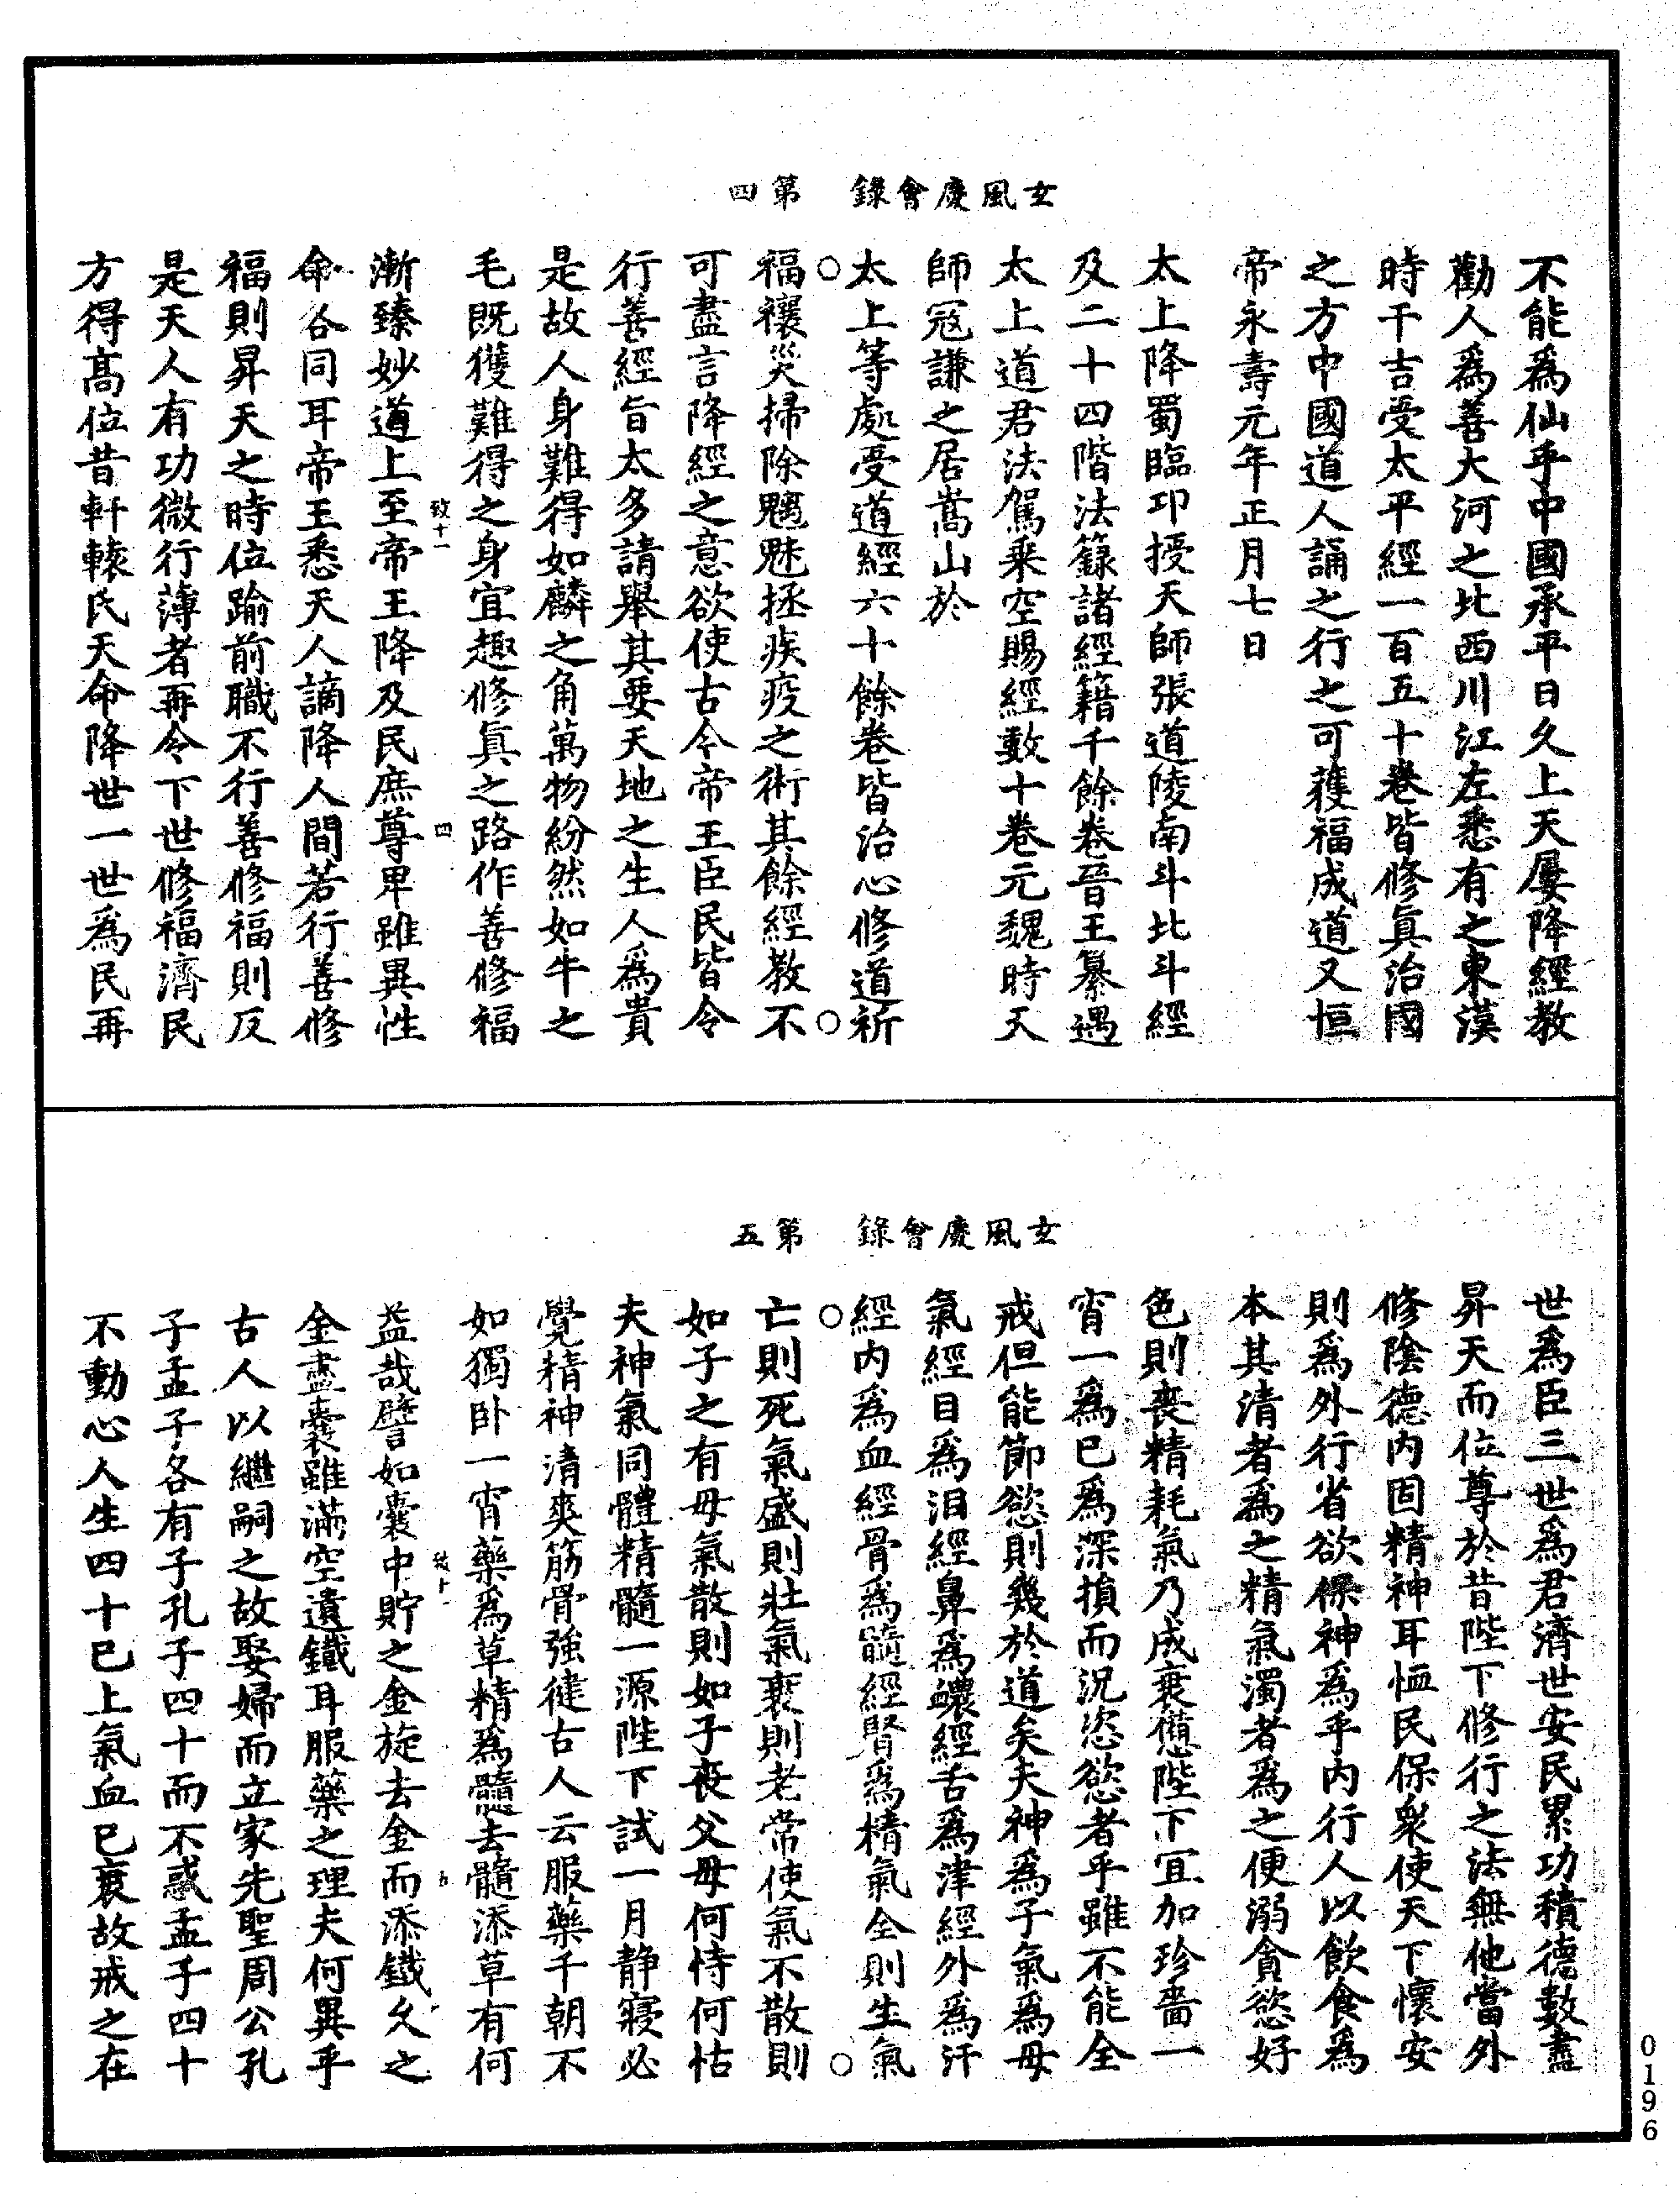 玄風慶會錄　第四
不能爲仙乎中國承平日久上天屢降經教
勸人爲善大河之北西川江左悉有之東漢
時干吉受太平經一百五十卷皆修眞治國
之方中國道人誦之行之可獲福成道又恒
帝永壽元年正月七日
太上降蜀臨卭授天師張道陵南斗北斗經
及二十四階法籙諸經籍千餘卷晉王纂遇
太上道君法駕乘空賜經數十卷元魏時天
師冦謙之居嵩山於
太上等處受道經六十餘卷皆治心修道祈
福禳災掃除魑魅拯疾疫之術其餘經教不
可盡言降經之意欲使古今帝王臣民皆令
行善經旨太多請舉其要天地之生人爲貴
是故人身難得如麟之角萬物紛然如牛之
毛既獲難得之身宜趣修眞之路作善修福
致十一　四
漸臻妙道上至帝王降及民庶尊卑雖異性
命各同耳帝王悉天人謫降人間若行善修
福則昇天之時位踰前職不行善修福則反
是天人有功微行薄者再令下世修福濟民
方得高位昔軒轅氏天命降世一世爲民再
玄風慶會錄　第五
世爲臣三世爲君濟世安民累功積德數盡
昇天而位尊於昔陛下修行之法無他當外
修陰德內固精神耳恤民保衆使天下懷安
則爲外行省欲保神爲乎內行人以飮食爲
本其清者爲之精氣濁者爲之便溺貪慾好
色則喪精耗氣乃成衰憊陛下宜加珍嗇一
宵一爲已爲深損而況恣慾者乎雖不能全
戒但能節慾則幾於道矣夫神爲子氣爲母
氣經目爲泪經鼻爲膿經舌爲津經外爲汗
經內爲血經骨爲髓經腎爲精氣全則生氣
亡則死氣盛則壯氣衰則老常使氣不散則
如子之有母氣散則如子喪父母何恃何怙
夫神氣同體精髓一源陛下試一月静寢必
覺精神清爽筋骨強健古人云服藥千朝不
如獨卧一宵藥爲草精爲髓去髓添草有何
益哉譬如囊中貯之金旋去金而添鐵久之
金盡囊雖滿空遺鐵耳服藥之理夫何異乎
古人以繼嗣之故娶婦而立家先聖周公孔
子孟子各有子孔子四十而不惑孟子四十
不動心人生四十已上氣血已衰故戒之在
0196